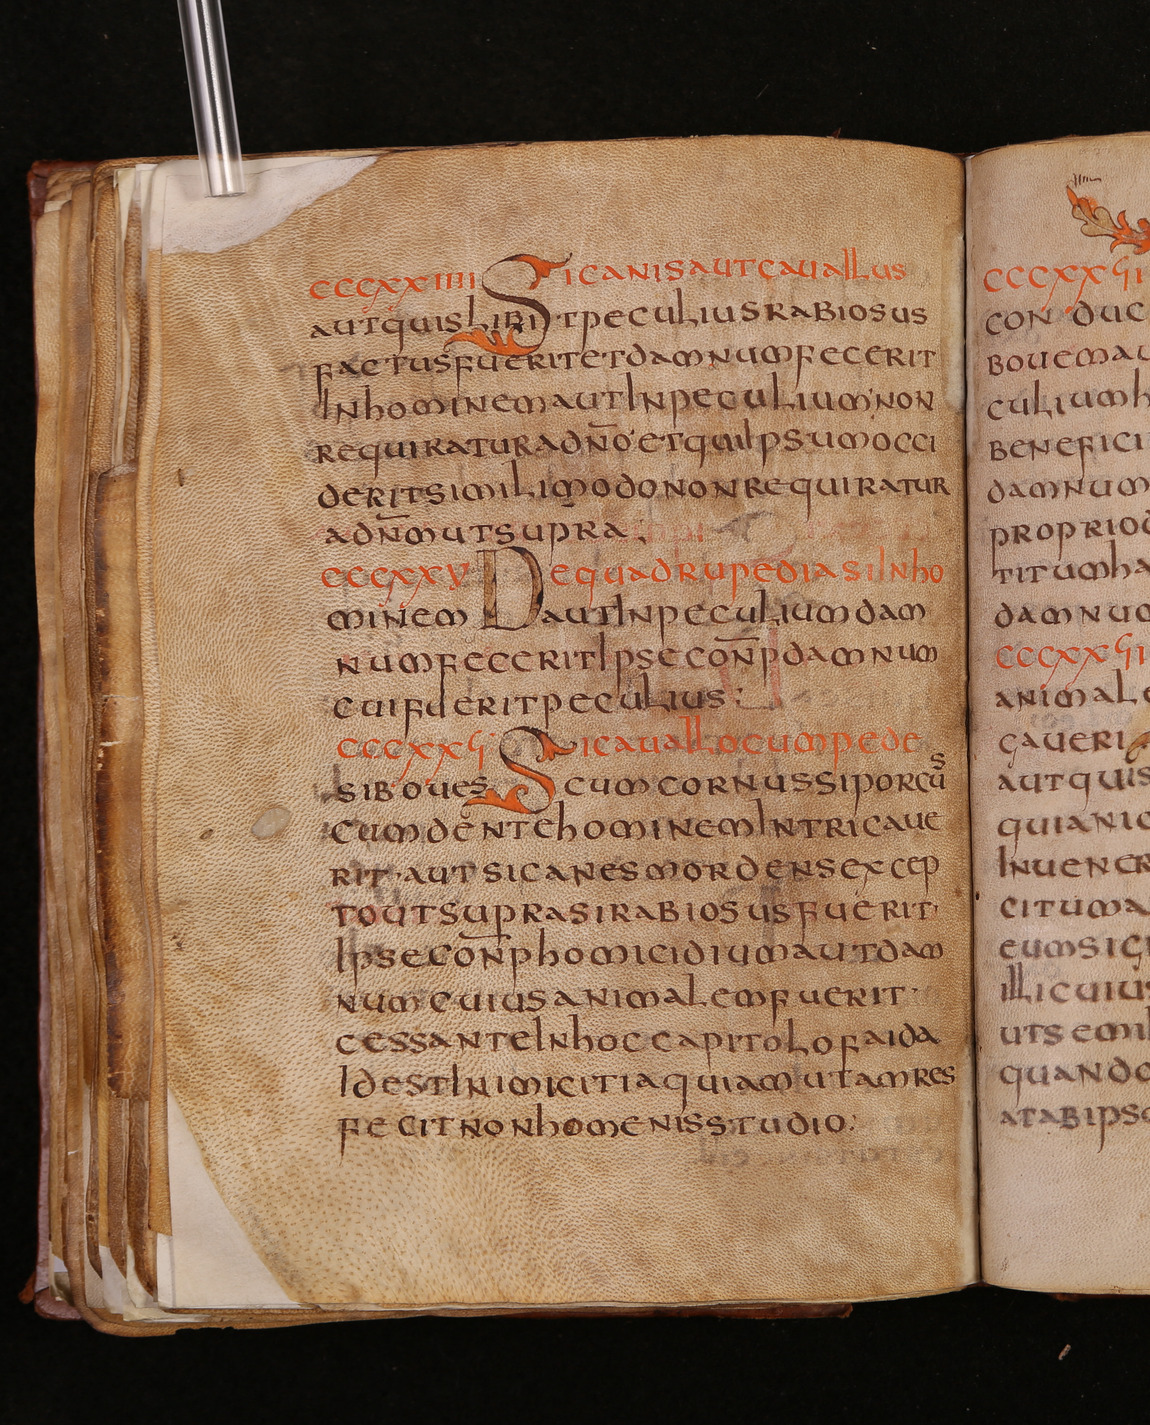 cccxxiiii Si canis aut cauallus
aut quislibit peculius rabiosus
factus fuerit et damnum fecerit
in hominem aut in peculium non
requiratur ad dn̄o et qui ipsum occi
derit simili modo non requiratur
ad dn̄m ut supra;
cccxxv De quadrupedia si in ho
minem aut in peculium dam
num fecerit ipse con̄p damnum
cui fuerit peculius:
cccxxϛ Si cauallo cum pede
si boues cum cornus si porcus
cum dente hominem intricaue
rit· aut si canes mordens excep
to ut supra si rabiosus fuerit·
ipse con̄p homicidium aut dam
num cuius animalem fuerit·
cessante in hoc capitolo faida
id est inimicitia quia muta res
fecit non homenis studio:
cccxxϛi
con duc
bouem au
culium h
benefici
damnum
proprio
titum ha
damnu
cccxxϛi
animal
gaueri
aut quis
quia ni
inuener
citum a
eum sic
illi cuius
ut semi
quando
ata b ips